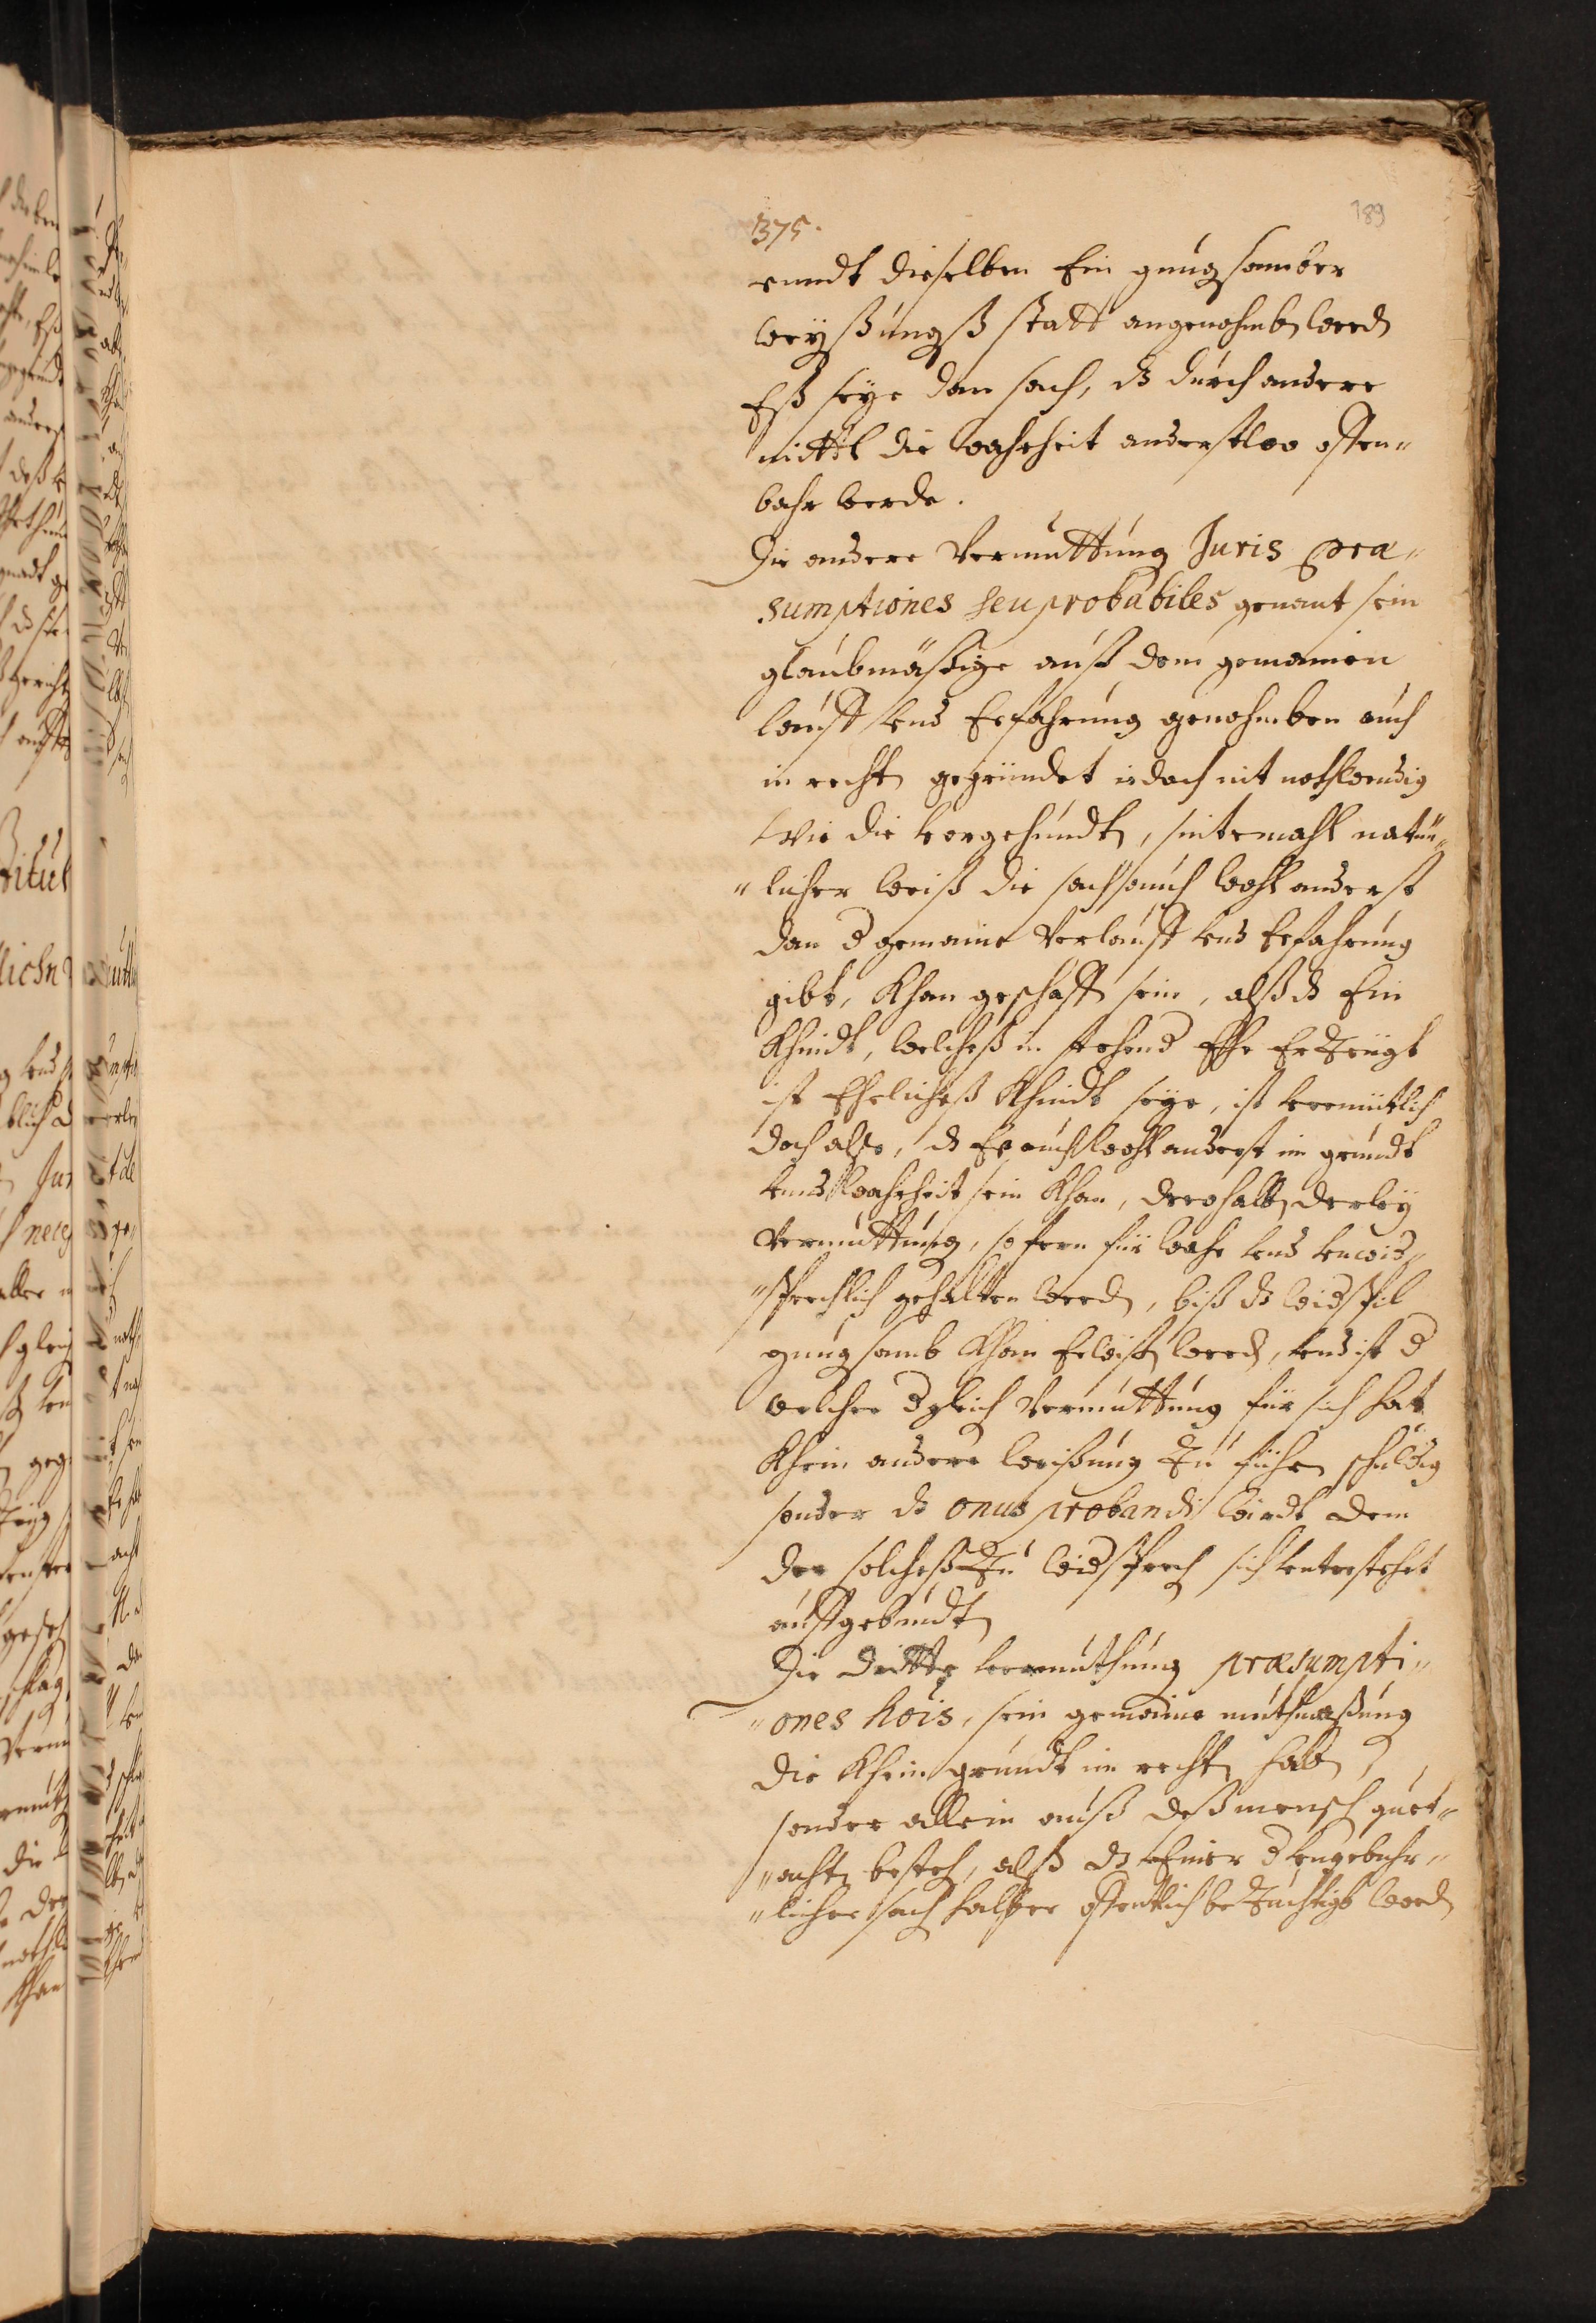 375.
189
vundt dieselben Ein gnugsamber
weyßungß statt angenohmben werd
Eß seye dan sach, dz durch andere
mittl die wahrheit anderstwo offen„
bahr werde.
Die andere vermuttung Juris præ„
sumptiones seu probabiles genant sein
glaubmäßige auß dem gemainen
lauff vnd Erfahrung genohmben auch
in recht gegründet iedoch nit nothwendig
wie die vorgehundt, sintemahl natür„
„licher weiß die sach auch wohl anderst
dan d gemaine verlauff vnd Erfahrung
gibt, Khan geschaff sein, alß dz Ein
Khindt, welcheß in stehend Ehe Erzeügt
ist Ehelicheß Khindt seye, ist vermütlich
doch also, dz Er auch wohl anderst im grundt
vnd wahrheit sein Khan, derohalb derley
vermuttung, so fern für wahr vnd vnwid„
„sprechlich gehalten werd, biß dz widspil
gnugsamb Khan Erwist werd, vnd ist d
welcher dgleich vermuttung für sich hat
Khein andere weißung zu führe schuldig
sonder dz onus probandi wirdt dem
der solcheß zu widsprech sich vnterstehet
auffgebundt
Die dritte vermuthung præsumpti„
„ones hois, sein gemaine muthmaßung
die Khein grundt im recht hab,
sonder allein auß deß mensch guet„
„acht besteh, alß dz Einer d vngebuhr„
„licher sach halber offentlich bezüchtigt werd